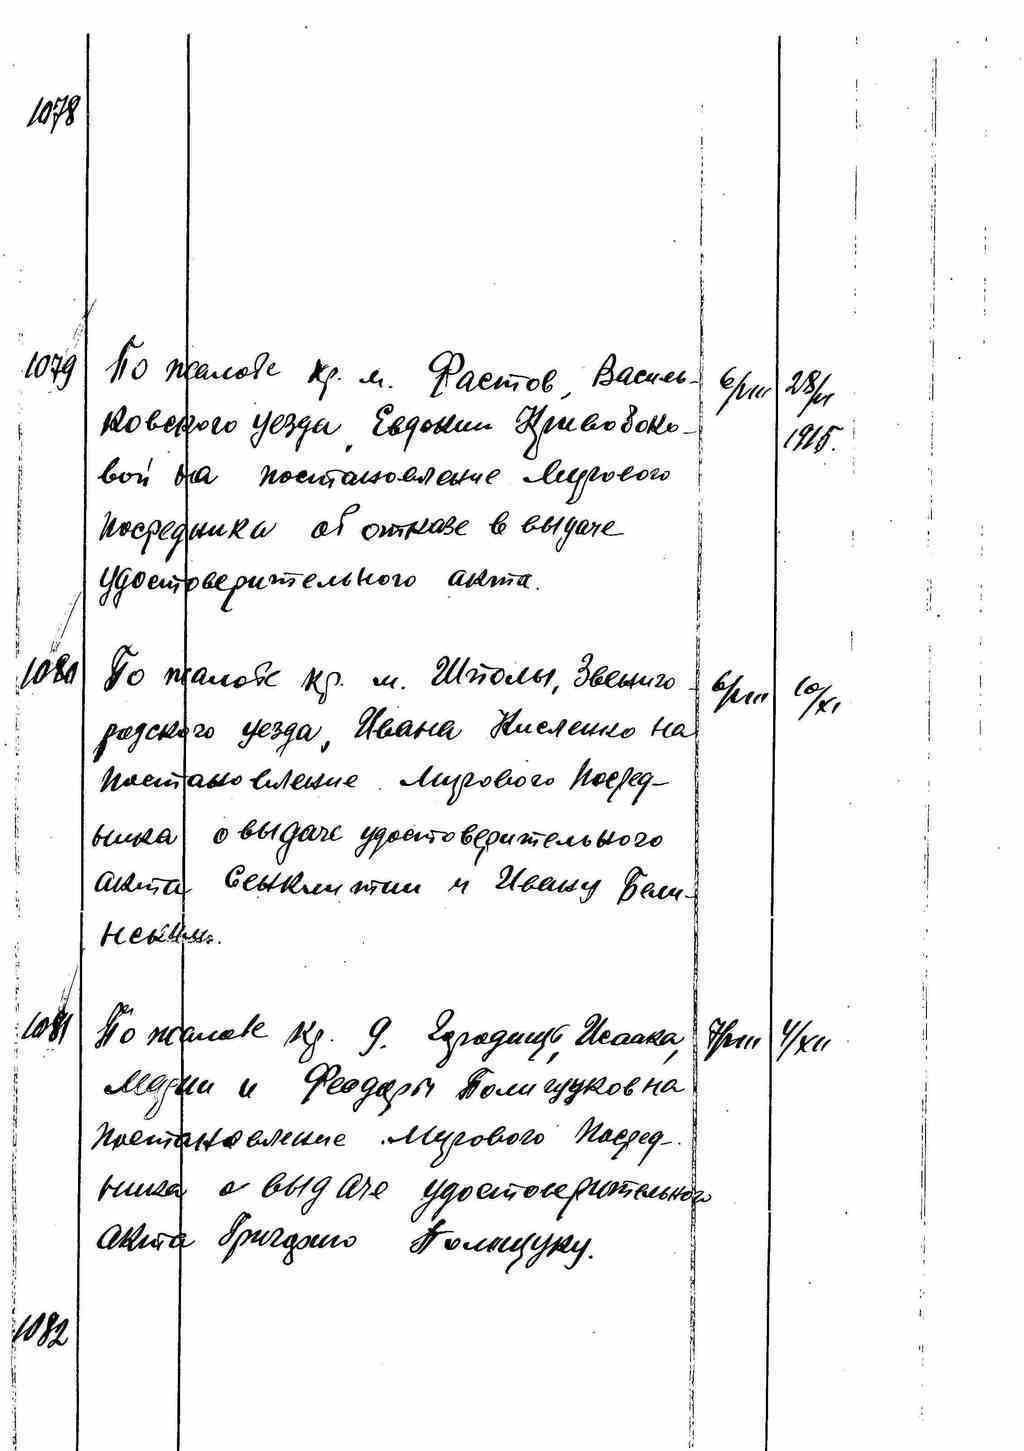 1078
1079 По жалобе кр. м. Фастов, Василь- 6/VIII 28/VI
ковского уезда, Евдокии Кривобоко- 1915.
вой на постановление Мирового
Посредника об отказе в выдаче
удостоверительного акта.
1080 По жалобе кр. м. Шполы, Звениго- 6/VIII 10/XI
родского уезда, Ивана Кисленко на
постановление Мирового Посред-
ника о выдаче удостоверительного
акта Сенклитии и Ивану Бели-
нским.
1081 По жалобе кр. д. Городищ, Исаака, 7/VIII 4/XII
Марии и Феодоры Полищуков на
постановление Мирового Посред-
ника о выдаче удостоверительного
акта Григорию Полищуку.
1082